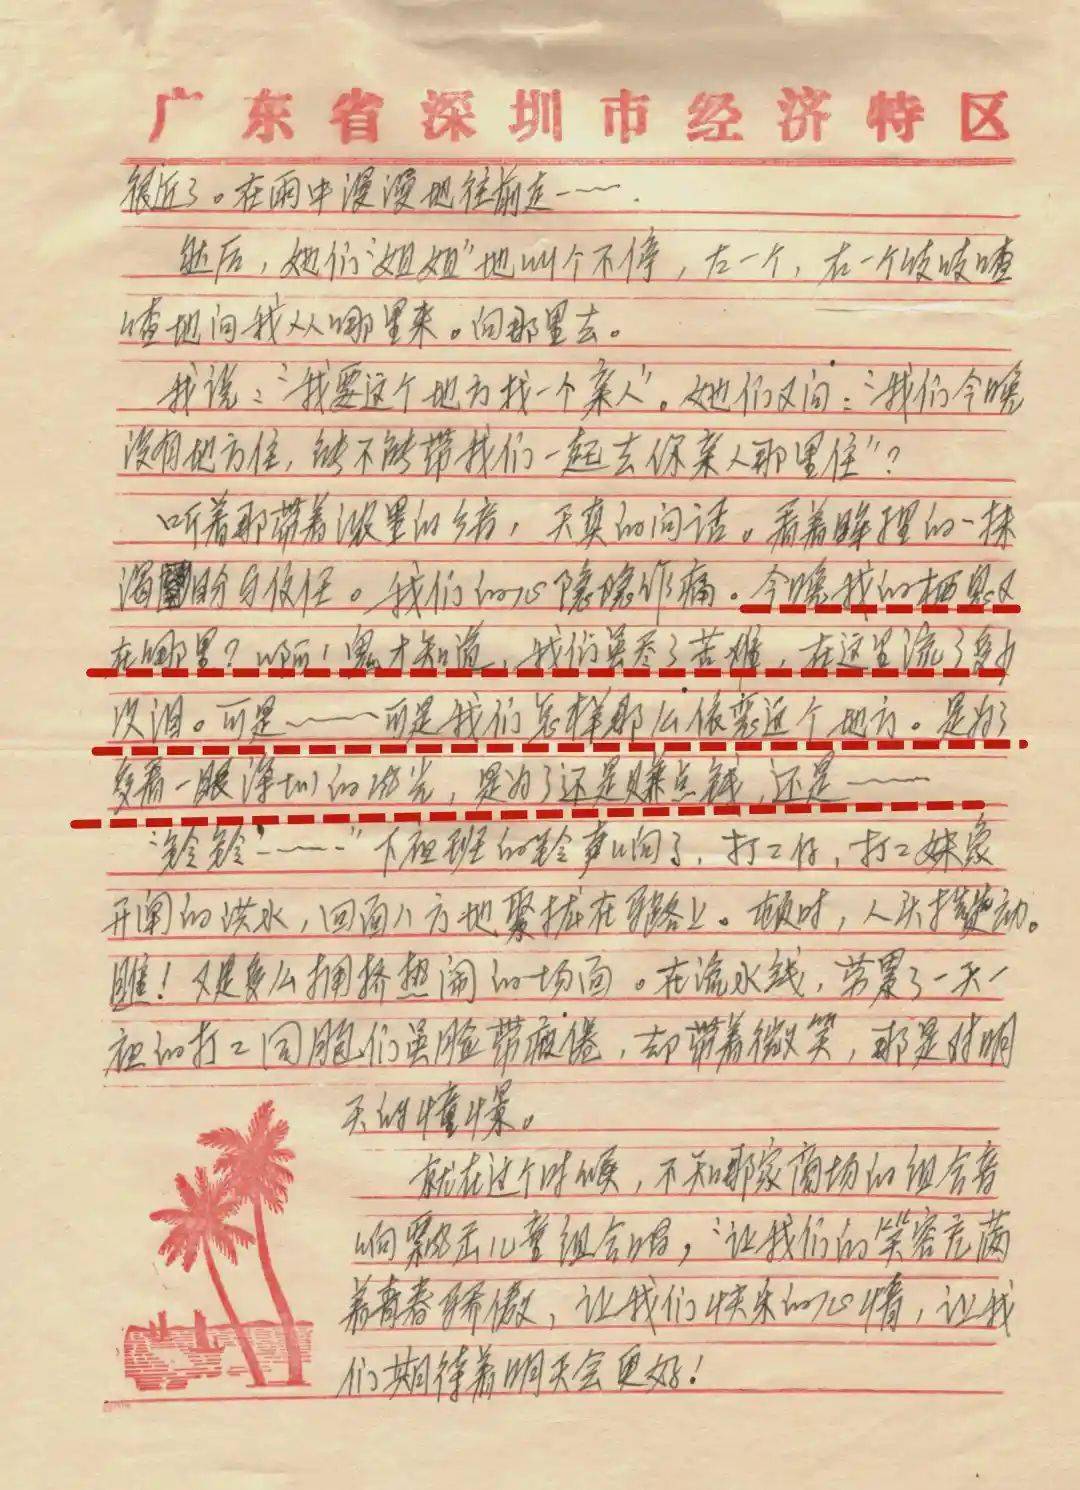 广东省深圳市经济特区
很近了。在雨中漫漫地往前走……
然后，她们“姐姐”地叫个不停，左一个，右一个吱吱喳
喳地问我从哪里来。向那里去。
我说：“我要这个地方找一个亲人”。她们又问：“我们今晚
没有地方住，能不能带我们一起去你亲人那里住”？
听着那带着浓厚的乡音，天真的问话。看着眸里的一抹
渴盼与信任。我们的心隐隐作痛。今晚我的栖息又
在哪里？啊！鬼才知道，我们尝尽了苦难，在这里流了多少
次泪。可是……可是我们怎样那么依恋这个地方。是为了
多看一眼深圳的风光，是为了还是赚点钱，还是……
“铃铃……”下夜班的铃声响了，打工仔，打工妹象
开闸的洪水，四面八方地聚扰在路上。顿时，人头攒动。
瞧！又是多么拥挤热闹的场面。在流水线，劳累了一天一
夜的打工同胞们虽脸带疲倦，却带着微笑，那是对明
天的憧憬。
就在这个时候，不知那家商场的组合音
响飘出儿童组合唱，“让我们的笑容充满
着青春骄傲，让我们快乐的心情，让我
们期待着明天会更好！